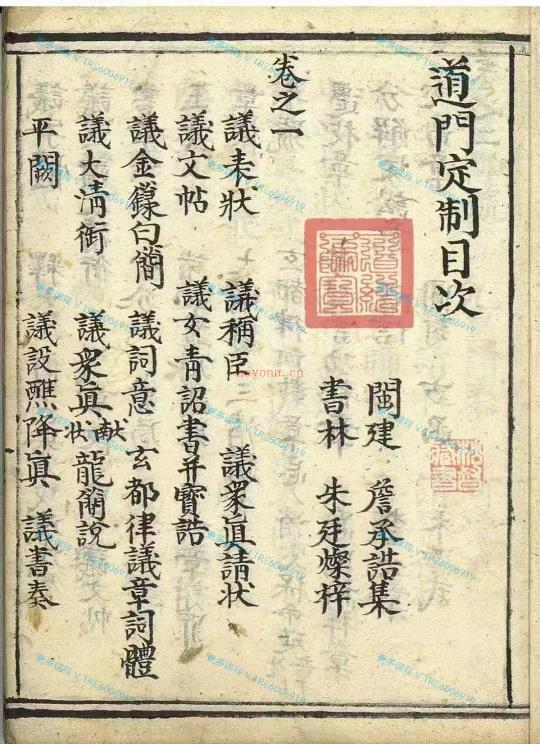 道門定制目次
閩建 詹承誥集
書林 朱廷燦梓
卷之一
議表狀 議稱臣 議衆眞請狀
議文帖 議女青詔書并寶誥
議金籙白簡 議詞意 玄都律議章詞體
議大清銜 議衆眞献狀 龍簡說
平闕 議設醮降眞 議書奏
hayona.cn
更多课程 V TRE6006919